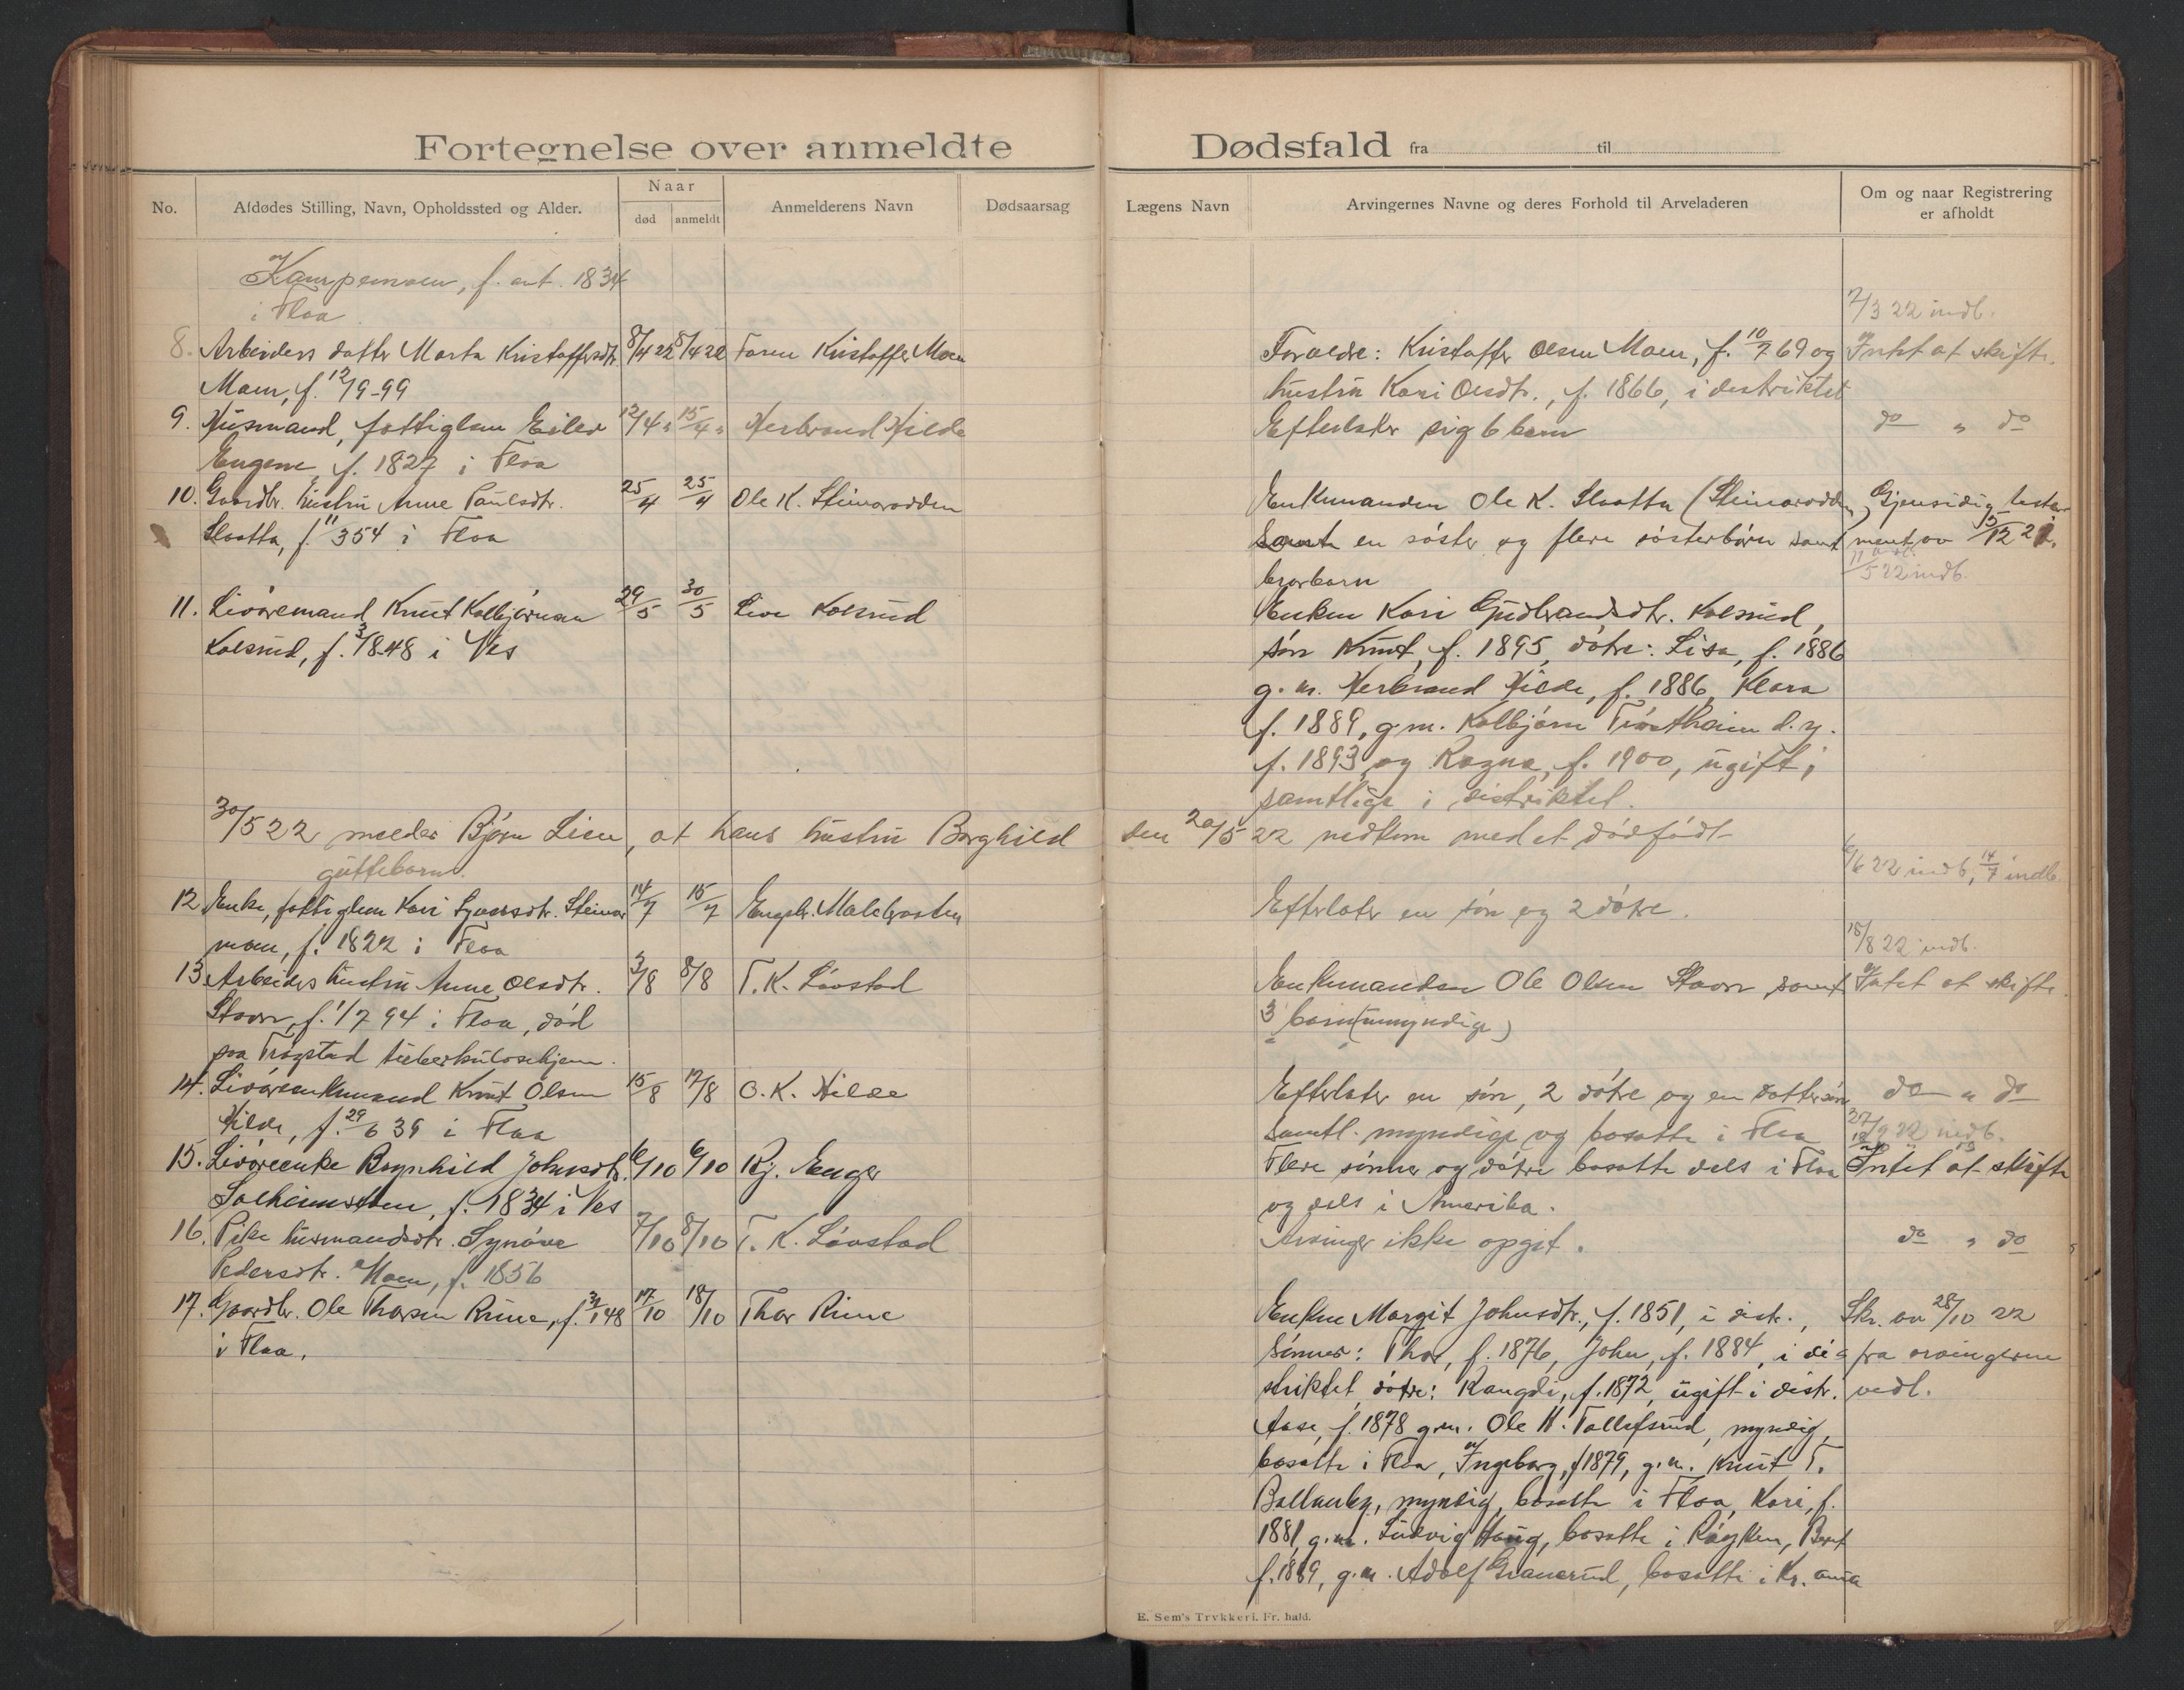 Fortegnelse over anmeldte Dødsfald fra til
No.
Afdødes Stilling, Navn, Opholdssted og Alder.
Naar
død
anmeldt
Anmelderens Navn
Dødsaarsag
Lægens Navn
Arvingernes Navne og deres Forhold til Arveladeren
Om og naar Registrering
er afholdt
Kampemoen, f. ant. 1834
i Flaa
2/3 22 indb.
8. Arbeiders datter Marta Kristoffersdtr. 8/4 22 8/4 22 Faren Kristoffer Moen
Moen, f. 12/9-99
Foraeldre: Kristoffer Olsen Moen, f. 10/7 69 og
hustru Kari Olsdtr., f. 1866, i destriktet
Intet at skifte.
9. Husmand, fattiglem Eilev 12/4 " 15/4 " Herbrand Hilde
Engene, f. 1827 i Flaa
Efterlater sig 6 barn
do " do
10. Gaardbr. hustru Anne Paulsdtr. 25/4 25/4 Ole K. Steinarodden
Slaatta, f. 11/3 54 i Flaa
Enkemanden Ole K. Slaatta (Steinarodden)
samt en søster og flere søsterbørn samt
brorbarn
Gjensidig testa-
ment av 15/12 21.
11/5 22 indb.
11. Livøremand Knut Kolbjørnsen 29/5 30/5 Live Kolsrud
Kolsrud, f. 3/8-48 i Nes
Enken Kari Gudbrandsdtr. Kolsrud,
søn Knut, f. 1895, døtre: Lisa, f. 1886
g. m. Herbrand Hilde, f. 1886, Klara
f. 1889, g. m. Kolbjørn Trøstheim d. y.
f. 1893 og Ragna, f. 1900, ugift,
samtlige i distriktet.
30/5 22 melder Bjørn Lien, at hans hustru Borghild den 20/5 22 nedkom med et dødfødt
guttebarn.
6/6 22 indb, 14/7 indb.
12 Enke, fattiglem Kari Syversdtr. Steinar 14/7 15/7 Engebr. Malebraaten
moen, f. 1822 i Flaa
Efterlater en søn og 2 døtre.
18/8 22 indb.
13 Arbeiders hustru Anne Olsdtr. 3/8 8/8 T. K. Løvstad
Stavn, f. 1/7 94 i Flaa, død
paa Trøgstad tuberkulosehjem.
Enkemanden Ole Olsen Stavn, samt
3 barn (umyndige)
Intet at skifte.
14. Livøreenkemand Knut Olsen 15/8 17/8 O. K. Hilde
Hilde, f. 29/6 39 i Flaa
Efterlater en søn, 2 døtre og en dattersøn
samtl. myndige og bosatte i Flaa
do " do
27/9 22 indb.
15. Livøreenke Ragnhild Johnsdtr. 6/10 6/10 Kj. Enger
Solheimseten, f. 1834 i Nes
Flere sønner og døtre bosatte dels i Flaa
og dels i Amerika.
Intet at skifte
16. Pike husmandsdtr. Synøve 7/10 8/10 T. K. Løvstad
Pedersdtr. Moen, f. 1856
Arvinger ikke opgit.
do " do
17. Gaardbr. Ole Thorsen Rime, f. 3/1 48 17/10 18/10 Thor Rime
i Flaa.
Enken Margit Johnsdtr., f. 1851, i distr.,
Sønner: Thor, f. 1876, John, f. 1884, i di-
striktet, døtre: Rangdi, f. 1872, ugift i distr.
Aase, f. 1878 g. m. Ole H. Tollefsrud, myndig,
bosatte i Flaa, Ingeborg, f 1879, g. m. Knut T.
Ballauby, myndig, bosatte i Flaa, Kari, f.
1881, g. m. Ludvig Haug, bosatte i Røyken, Berit
f. 1889, g. m. Adolf Granerud, bosatte i Kr. ania
Skr. av 28/10 22
fra arvingerne
vedl.
E. Sem's Trykkeri. Fr. hald.